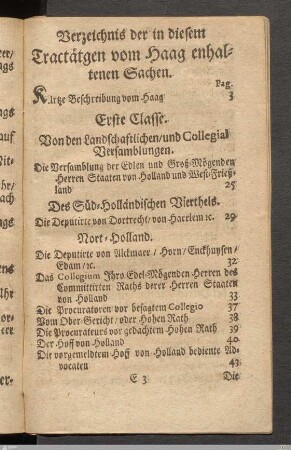 Verzeichnis der in diesem
Tractätgen vom Haag enhal-
tenen Sachen.
Pag.
Kurtze Beschreibung vom Haag 3
Erste Classe.
Von den Landschafftlichen/und Collegial
Versamblungen.
Die Versamblung der Edlen und Groß-Mögenden
Herren Staaten von Holland und West-Frieß-
land 25
Des Süd-Holländischen Vierthels.
Die Deputirte von Dortrecht/von Haerlem ꝛc. 29
Nort-Holland.
Die Deputirte von Alckmaer/Horn/Enckhuysen/
Edam/ꝛc. 32
Das Collegium Ihro Edel-Mögenden Herren des
Committirten Raths derer Herren Staaten
von Holland 33
Die Procuratoren vor besagtem Collegio 37
Vom Ober-Gericht/oder Hohen Rath 38
Die Procurateurs vor gedachtem Hohen Rath 39
Der Hoff von Holland 40
Die vorgemeldtem Hoff von Holland bediente Ad-
vocaten 43
E 3 Die